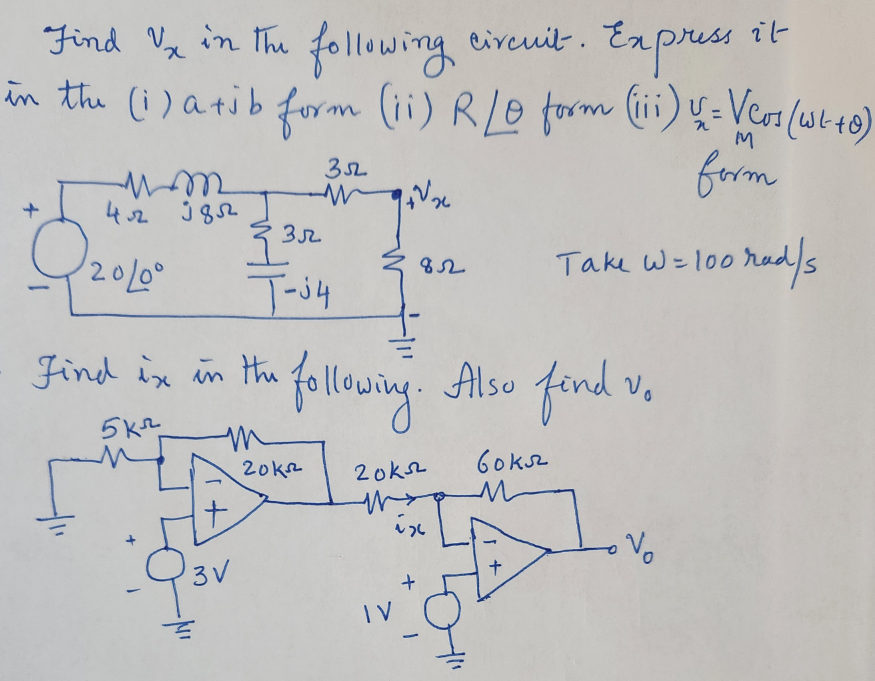 Find Vx in the following circuit. Express it
in the (i) a+jb form (ii) R∠θ form (iii) vx = VM cos(ωt+θ)
form
3Ω
+Vx
4Ω j8Ω
+
3Ω
8Ω
20∠0°
Take ω=100 rad/s
-
-j4
-
Find ix in the following. Also find vo
5kΩ
20kΩ
20kΩ
60kΩ
-
+
ix
-
+
Vo
+
3V
-
+
1V
-